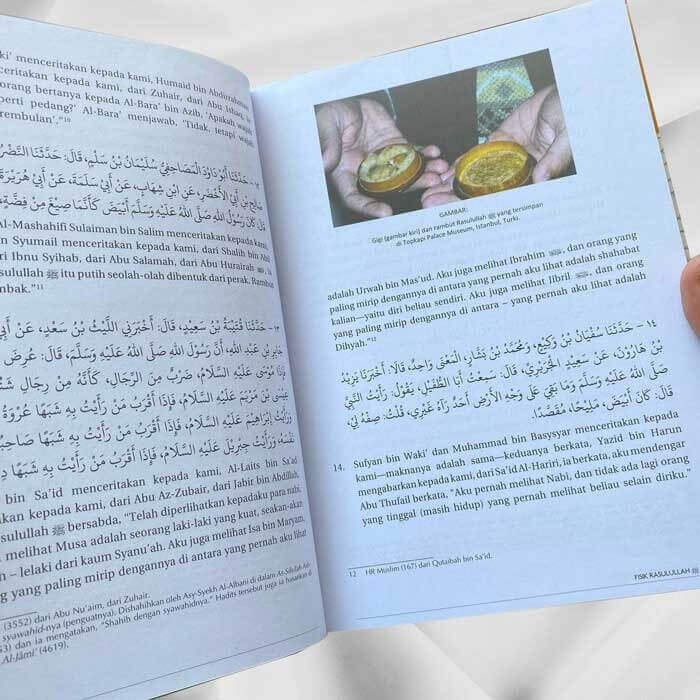 ki' menceritakan kepada kami, Humaid bin Abdirrahman
ceritakan kepada kami, dari Zuhair, dari Abu Ishaq,
orang bertanya kepada Al-Bara' bin Azib, 'Apakah wajah
perti pedang?' Al-Bara' menjawab, 'Tidak, tetapi wajah
rembulan'."¹⁰
١٢ – حَدَّثَنَا أَبُو دَاوُدَ الْمَصَاحِفِيُّ سُلَيْمَانُ بْنُ سَلْمٍ، قَالَ: حَدَّثَنَا النَّضْرُ
صَالِحِ بْنِ أَبِي الْأَخْضَرِ، عَنِ ابْنِ شِهَابٍ، عَنْ أَبِي سَلَمَةَ، عَنْ أَبِي هُرَيْرَةَ
قَالَ: كَانَ رَسُولُ اللهِ صَلَّى اللهُ عَلَيْهِ وَسَلَّمَ أَبْيَضَ كَأَنَّمَا صِيغَ مِنْ فِضَّةٍ،
Al-Mashahifi Sulaiman bin Salim menceritakan kepada kami,
n Syumail menceritakan kepada kami, dari Shalih bin Abil
ri Ibnu Syihab, dari Abu Salamah, dari Abu Hurairah
sulullah ﷺ itu putih seolah-olah dibentuk dari perak, Rambut
mbak."¹¹
١٣ – حَدَّثَنَا قُتَيْبَةُ بْنُ سَعِيدٍ، قَالَ: أَخْبَرَنِي اللَّيْثُ بْنُ سَعْدٍ، عَنْ أَبِي
جَابِرِ بْنِ عَبْدِ اللهِ، أَنَّ رَسُولَ اللهِ صَلَّى اللهُ عَلَيْهِ وَسَلَّمَ، قَالَ: عُرِضَ
فَإِذَا مُوسَى عَلَيْهِ السَّلَامُ، ضَرْبٌ مِنَ الرِّجَالِ، كَأَنَّهُ مِنْ رِجَالِ
عِيسَى بْنَ مَرْيَمَ عَلَيْهِ السَّلَامُ، فَإِذَا أَقْرَبُ مَنْ رَأَيْتُ بِهِ شَبَهًا عُرْوَةُ
وَرَأَيْتُ إِبْرَاهِيمَ عَلَيْهِ السَّلَامُ، فَإِذَا أَقْرَبُ مَنْ رَأَيْتُ بِهِ شَبَهًا
نَفْسَهُ وَرَأَيْتُ جِبْرِيلَ عَلَيْهِ السَّلَامُ، فَإِذَا أَقْرَبُ مَنْ رَأَيْتُ بِهِ شَبَهًا
bin Sa'id menceritakan kepada kami, Al-Laits bin Sa'd
nceritakan kepada kami, dari Abu Az-Zubair, dari Jabir bin Abdillah,
sulullah ﷺ bersabda, "Telah diperlihatkan kepadaku para nabi,
melihat Musa adalah seorang laki-laki yang kuat, seakan-akan
– lelaki dari kaum Syanu'ah. Aku juga melihat Isa bin Maryam,
ng yang paling mirip dengannya di antara yang pernah aku lihat
(3552) dari Abu Nu'aim, dari Zuhair.
syawahid-nya (penguatnya). Dishahihkan oleh Asy-Syekh Al-Albani di dalam As-Silsilah
53) dan ia mengatakan, "Shahih dengan syawahidnya." Hadits tersebut juga ia hasankan di
Al-Jâmi' (4619).
GAMBAR:
Gigi (gambar kiri) dan rambut Rasulullah ﷺ yang tersimpan
di Topkapi Palace Museum, Istanbul, Turki.
adalah Urwah bin Mas'ud. Aku juga melihat Ibrahim , dan orang yang
paling mirip dengannya di antara yang pernah aku lihat adalah shahabat
kalian—yaitu diri beliau sendiri. Aku juga melihat Jibril , dan orang
yang paling mirip dengannya di antara – yang pernah aku lihat adalah
Dihyah."¹²
١٤ – حَدَّثَنَا سُفْيَانُ بْنُ وَكِيعٍ، وَمُحَمَّدُ بْنُ بَشَّارٍ، الْمَعْنَى وَاحِدٌ، قَالَا: أَخْبَرَنَا يَزِيدُ
بْنُ هَارُونَ، عَنْ سَعِيدٍ الْجُرَيْرِيِّ، قَالَ: سَمِعْتُ أَبَا الطُّفَيْلِ، يَقُولُ: رَأَيْتُ النَّبِيَّ
صَلَّى اللهُ عَلَيْهِ وَسَلَّمَ وَمَا بَقِيَ عَلَى وَجْهِ الْأَرْضِ أَحَدٌ رَآهُ غَيْرِي، قُلْتُ: صِفْهُ لِي،
قَالَ: كَانَ أَبْيَضَ، مَلِيحًا، مُقَصَّدًا.
14. Sufyan bin Waki' dan Muhammad bin Basysyar menceritakan kepada
kami—maknanya adalah sama—keduanya berkata, Yazid bin Harun
mengabarkan kepada kami, dari Sa'id Al-Hariri, ia berkata, aku mendengar
Abu Thufail berkata, "Aku pernah melihat Nabi, dan tidak ada lagi orang
yang tinggal (masih hidup) yang pernah melihat beliau selain diriku."
12 HR Muslim (167) dari Qutaibah bin Sa'id.
FISIK RASULULLAH ﷺ